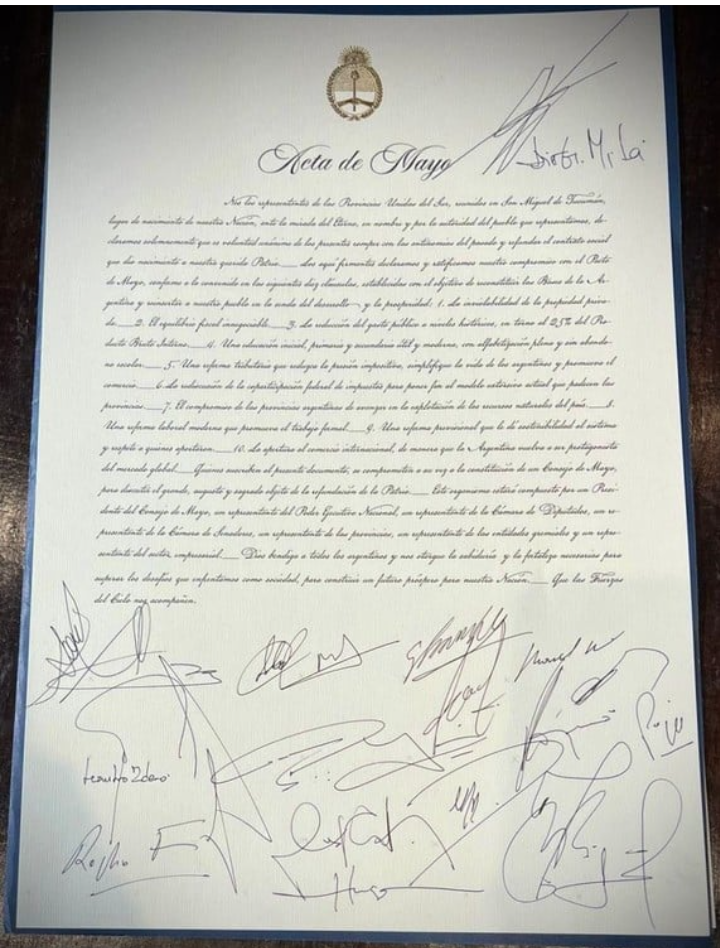 Javier Milei
Acta de Mayo
Nos los representantes de las Provincias Unidas del Sur, reunidos en San Miguel de Tucumán,
lugar de nacimiento de nuestra Nación, ante la mirada del Eterno, en nombre y por la autoridad del pueblo que representamos, de-
claramos solemnemente que es voluntad unánime de los presentes romper con las antinomias del pasado y refundar el contrato social
que dio nacimiento a nuestra querida Patria.___Los aquí firmantes declaramos y ratificamos nuestro compromiso con el Pacto
de Mayo, conforme a lo consensuado en las siguientes diez cláusulas, establecidas con el objetivo de reconstituir las Bases de la Ar-
gentina y reinsertar a nuestro pueblo en la senda del desarrollo y la prosperidad: 1. La inviolabilidad de la propiedad priva-
da.___2. El equilibrio fiscal innegociable.___3. La reducción del gasto público a niveles históricos, en torno al 25% del Pro-
ducto Bruto Interno.___4. Una educación inicial, primaria y secundaria útil y moderna, con alfabetización plena y sin abando-
no escolar.___5. Una reforma tributaria que reduzca la presión impositiva, simplifique la vida de los argentinos y promueva el
comercio.___6. La rediscusión de la coparticipación federal de impuestos para poner fin al modelo extorsivo actual que padecen las
provincias.___7. El compromiso de las provincias argentinas de avanzar en la explotación de los recursos naturales del país.___8.
Una reforma laboral moderna que promueva el trabajo formal.___9. Una reforma previsional que le dé sostenibilidad al sistema
y respete a quienes aportaron.___10. La apertura al comercio internacional, de manera que la Argentina vuelva a ser protagonista
del mercado global.___Quienes suscriben el presente documento, se comprometen a su vez a la constitución de un Consejo de Mayo,
para discutir el grande, augusto y sagrado objeto de la refundación de la Patria.___Este organismo estará compuesto por un Presi-
dente del Consejo de Mayo, un representante del Poder Ejecutivo Nacional, un representante de la Cámara de Diputados, un re-
presentante de la Cámara de Senadores, un representante de las provincias, un representante de las entidades gremiales y un repre-
sentante del sector empresarial.___Dios bendiga a todos los argentinos y nos otorgue la sabiduría y la fortaleza necesarias para
superar los desafíos que enfrentamos como sociedad, para construir un futuro próspero para nuestra Nación.___Que las Fuerzas
del Cielo nos acompañen.
Leandro Zdero
Rogelio F
Hugo